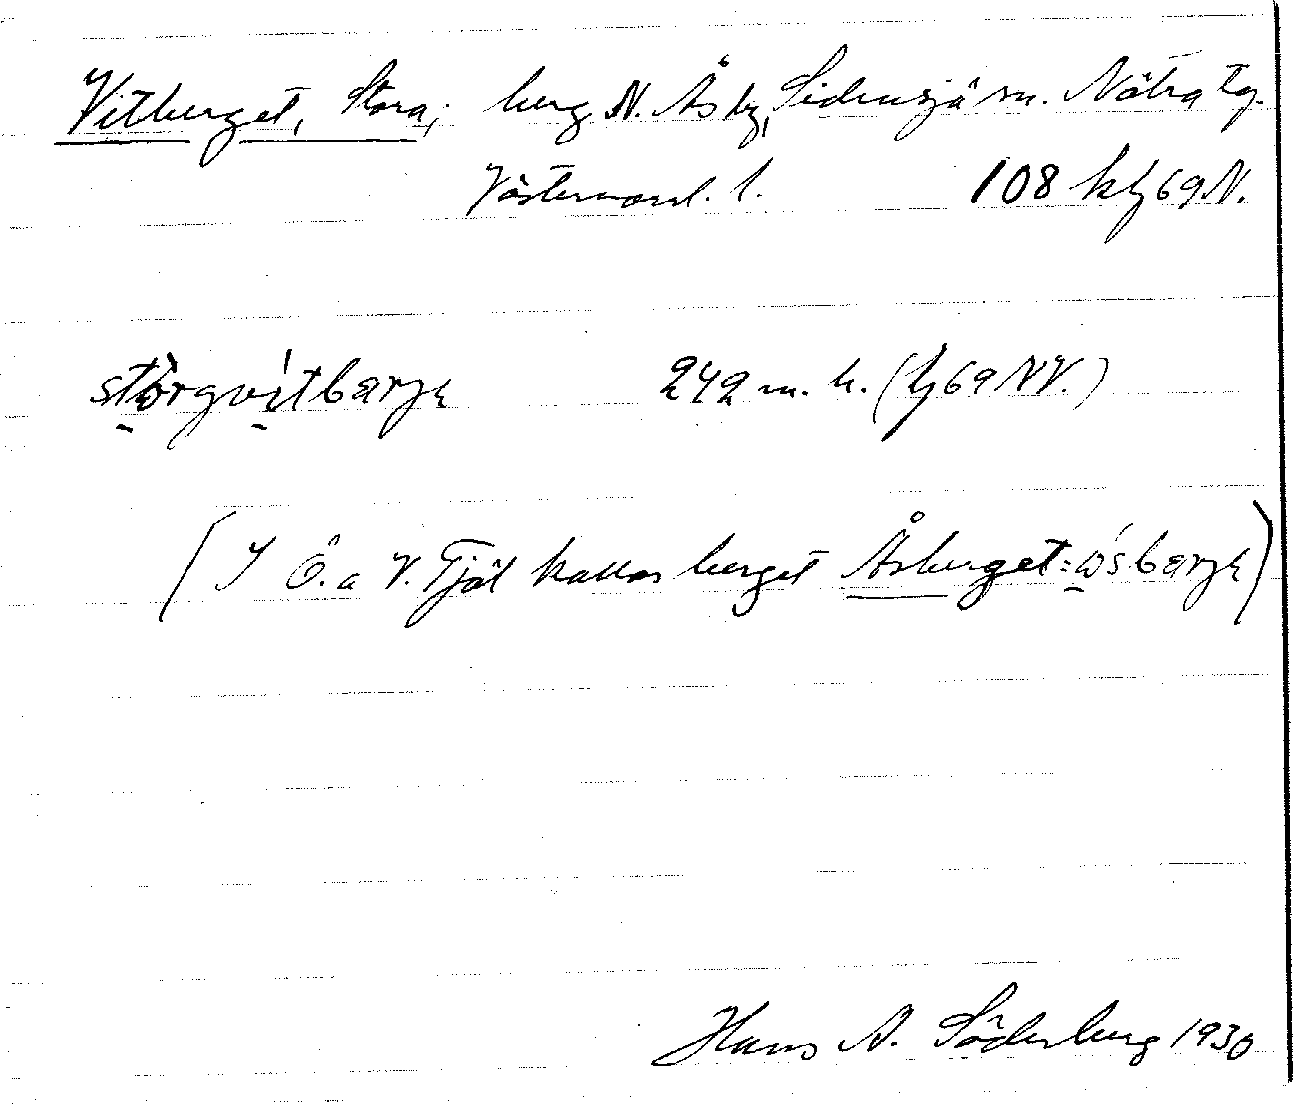 Vitberget, Stora; berg N. Ås by, Sidensjö sn. Nätra tg.
Västernorrl. l. 108 kbj 69 N.
störgvitbærjɛ 242 m. h. (bj 69 NV.)
(I Ö. a V. Tjäl kallas berget Åsberget: ɷ́sbærjɛ)
Hans N. Söderberg 1930